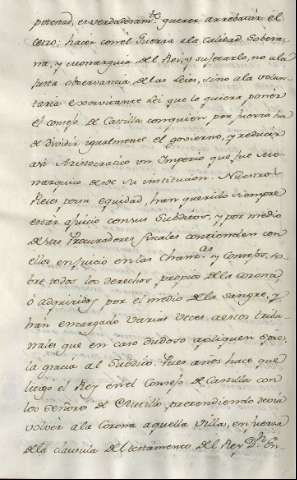 potestad, es verdaderam.te querer arrebatar el
cetro; hacer con el Guerra a la calidad Sobera-
na, y monarquia del Rey, y sugetarlo, no a la
justa observancia de las Leies, sino a la volun-
taria y exorvitante Lei que le quiera poner
el consejo de Castilla con quien, por fuerza ha
de dividir igualmente el govierno, y reducir
a Aristocratico un Imperio que fue Mo-
narquico desde su institucion. Nuestros
Reies por su equidad, han querido siempre
estar a juicio con sus Subditos, y por medio
de sus Procuradores fiscales contienden con
ellos en juicio en las Chanc.as y Consejos, so-
bre todos los derechos propios de la corona,
ó adquiridos por el medio de la sangre, y
han encargado varias veces a estos tribu-
nales que en caso dudoso apliquen
la gracia al Subdito. Pocos años hace que
litigo el Rey en el Consejo de Castilla con
los Señores de pretendiendo devia
volver a la Corona aquella Villa, en fuerza
de la clausula del testamento del Rey D.n En-